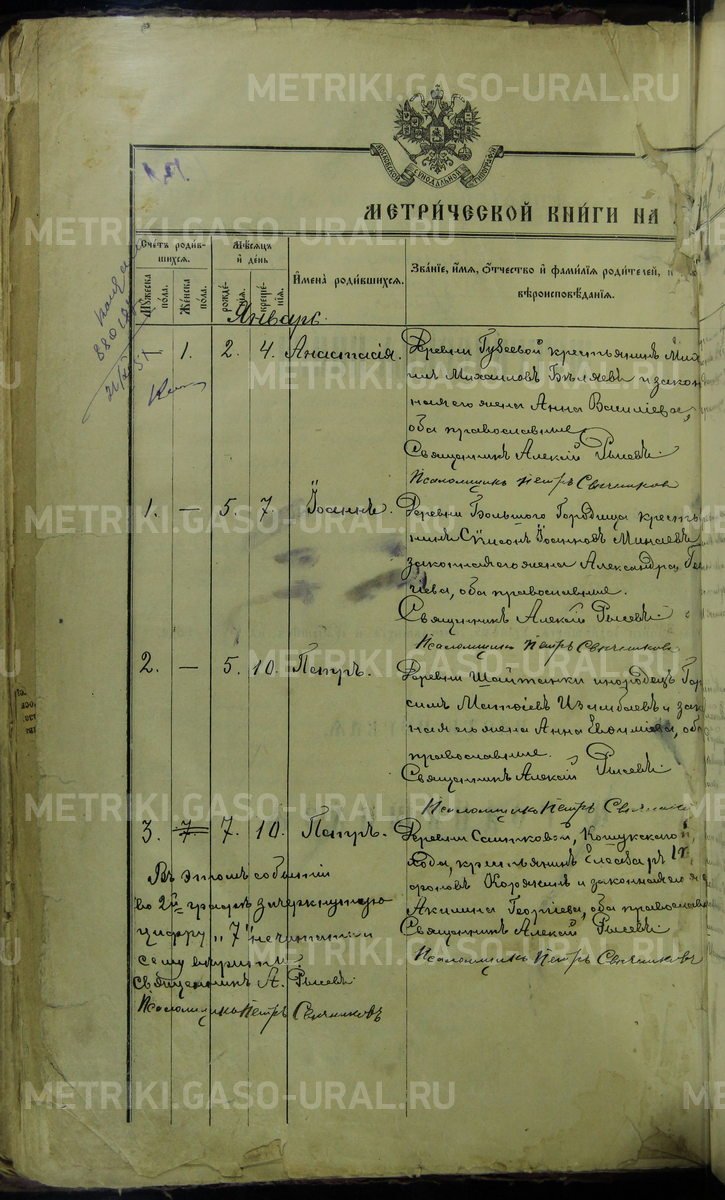 METRIKI.GASO-URAL.RU
МОСКОВСКОЙ СѴНОДАЛЬНОЙ ТИПОГРАФІИ
МЕТРИ́ЧЕСКОЙ КНИ́ГИ НА
Сче́тъ роди́в-
шихся.
Му́жеска
по́ла.
Же́нска
по́ла.
Мѣ́сяцъ
и҆ де́нь
рожде́-
нїя.
креще́-
нїя.
И҆мена̀ роди́вшихся.
Зва́нїе, и҆́мя, ѻ҆́тчество и҆ фами́лїя роди́телей, и҆
вѣроисповѣ́данїя.
Январь.
— 1. 2. 4. Анастасія.
Деревни Губеевой крестьянинъ Ми
Михаиловъ Бѣляевъ и закон
ная его жена Анна Василіева,
оба православные
Священникъ Алексій Рысевъ
Псаломщикъ Петръ Свѣчниковъ
1. — 5. 7. Іоаннъ.
Деревни Большого Городища кресть
нинъ Іоанновъ Минаевъ
законная его жена Александра Ге
гіева, оба православные.
Священникъ Алексій Рысевъ
Псаломщикъ Петръ Свѣчниковъ
2. — 5. 10. Петръ.
Деревни Шайтанки инородецъ Гер
симъ Матѳіевъ Изимбаевъ и зак
ная его жена Анна Евѳиміева, оба
православные.
Священникъ Алексій Рысевъ
Псаломщикъ Петръ Свѣчников
3. 7 7. 10. Петръ.
Деревни Кошукскаго
хода, крестьянинъ Елеазаръ
ороновъ Коряжинъ и законная его ж
Акилина Георгіева, оба православн
Священникъ Алексій Рысевъ
Псаломщикъ Петръ Свѣчниковъ
Въ этомъ событіи
во 2й графѣ зачеркнутую
цифру „7" не читать и
сему вѣрить.
Священникъ А. Рысевъ
Псаломщикъ Петръ Свѣчниковъ